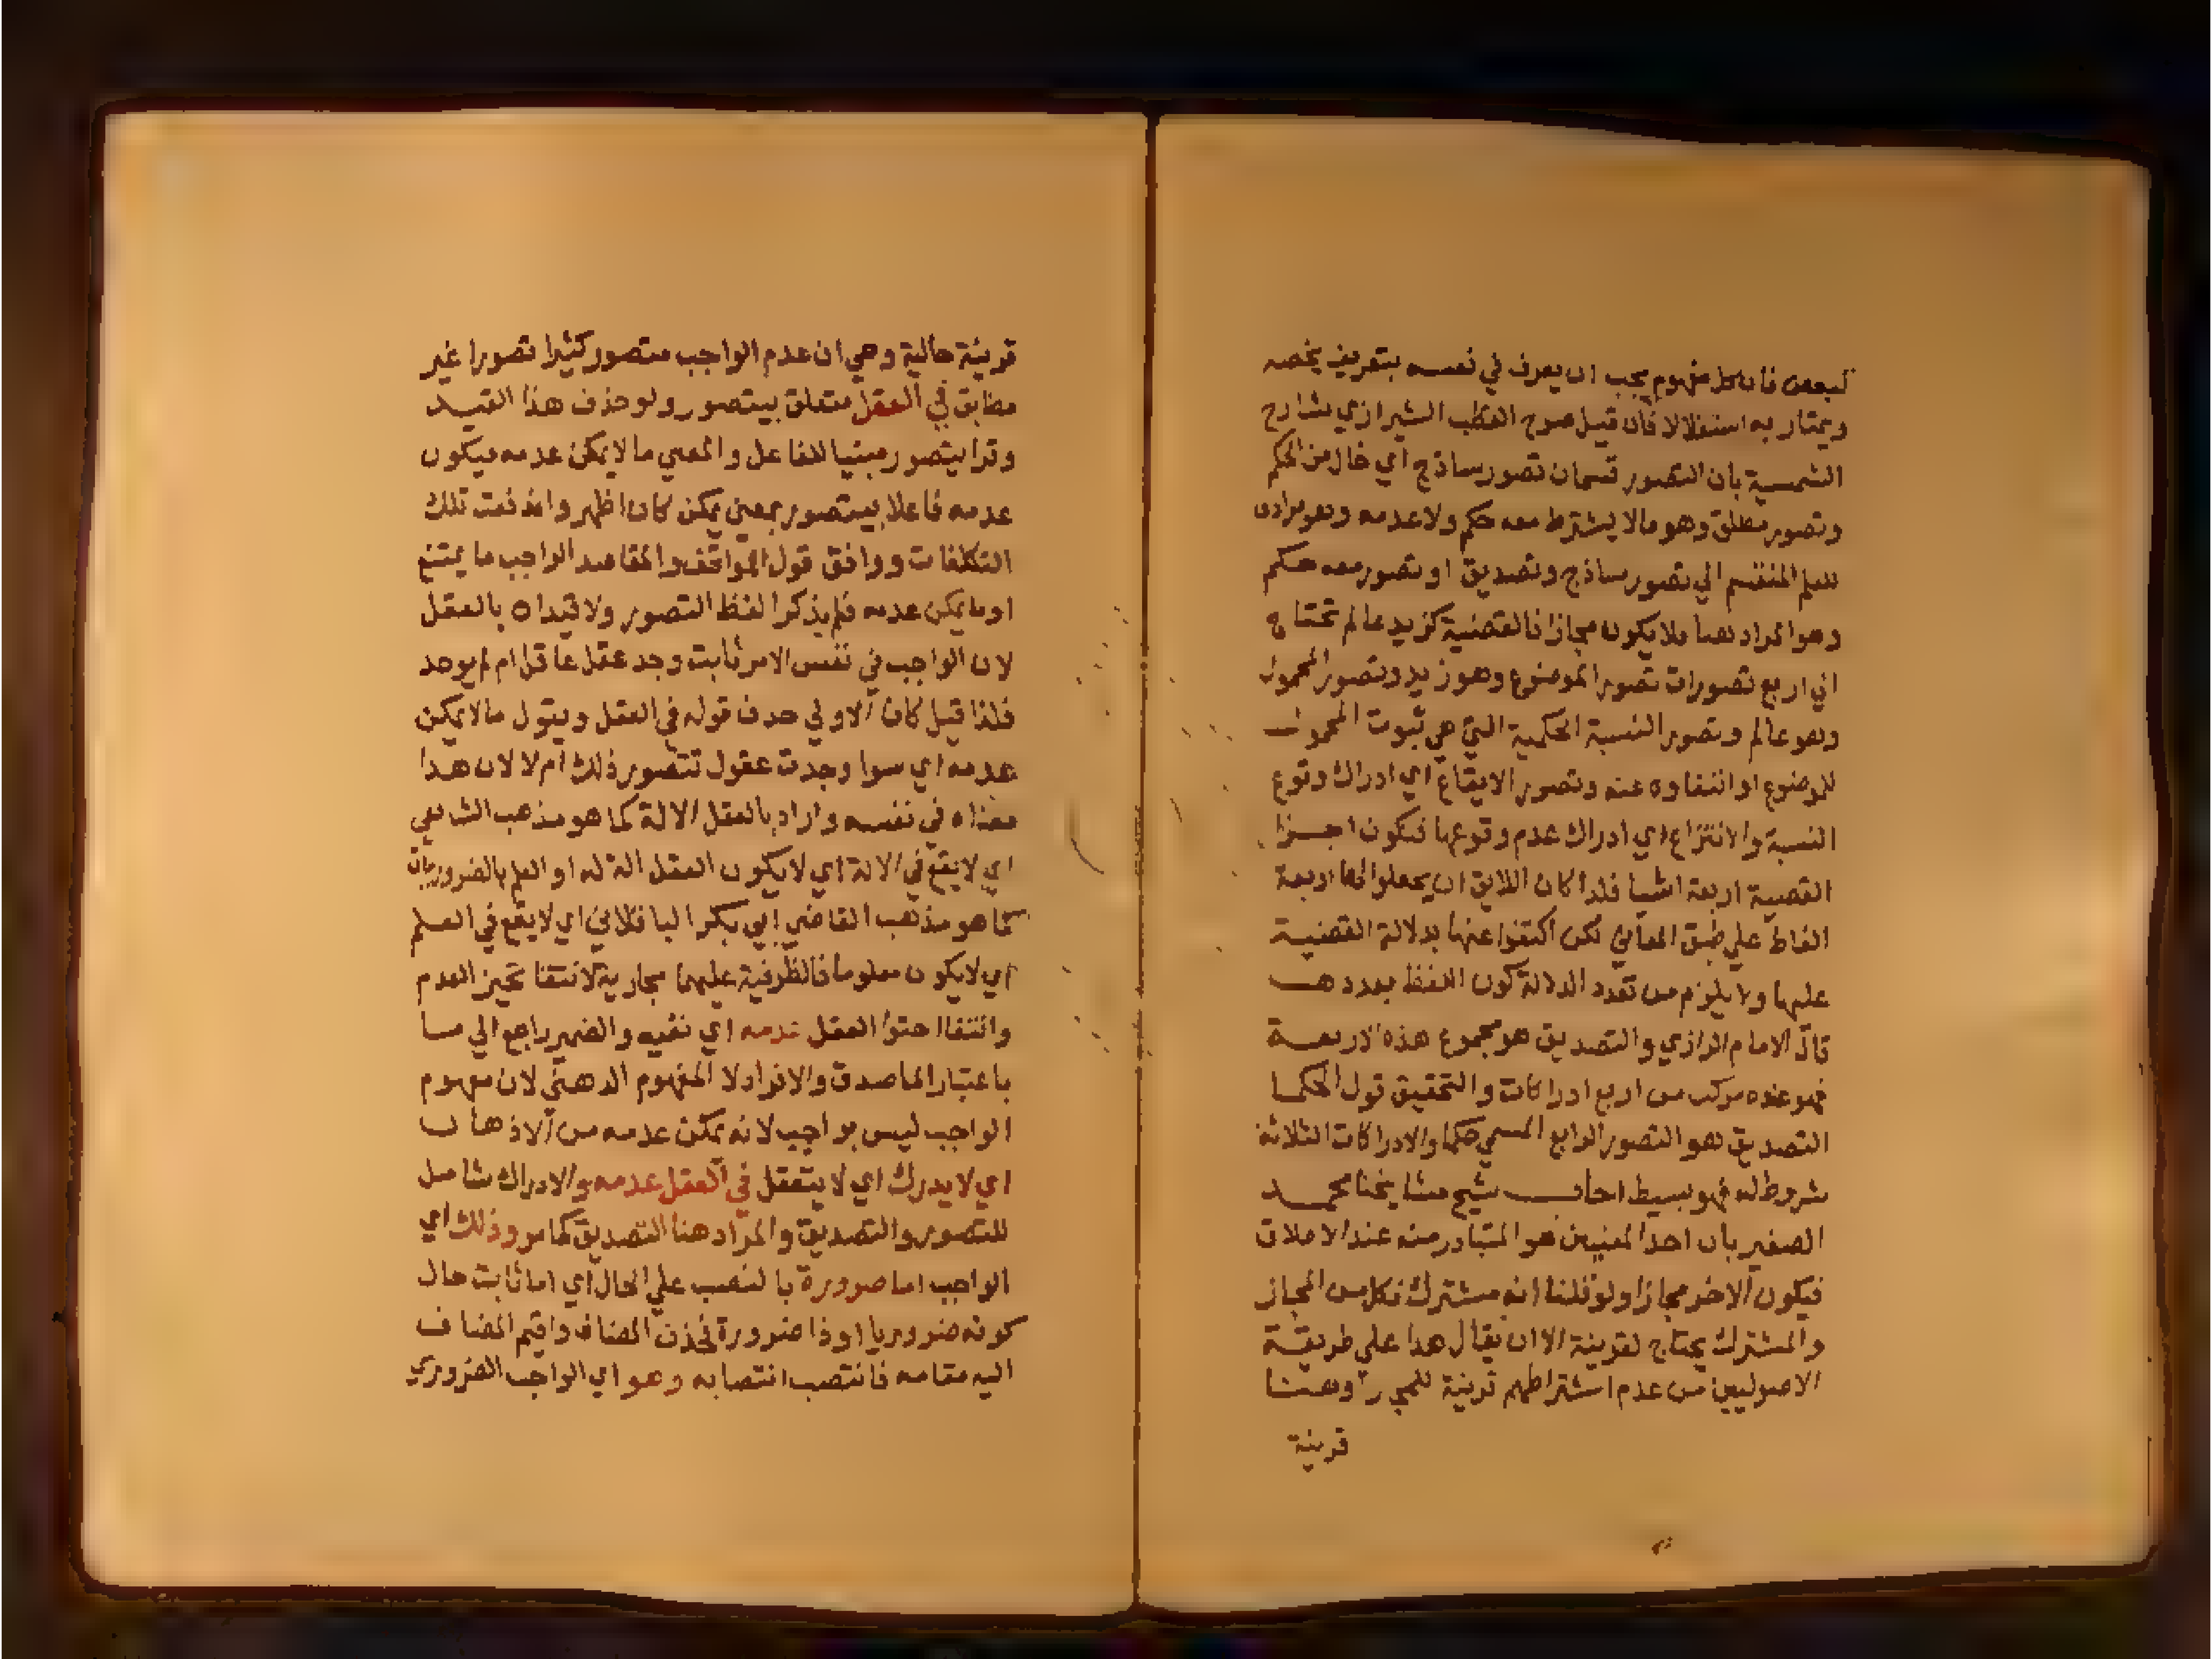 لبعض فان كل مفهوم يجب ان يعرف في نفسه بتعريف يخصه
ويمتاز به استقلالا فان قيل صرح القطب الشيرازي شارح
الشمسية بان التصور قسمان تصور ساذج اي خال من الحكم
وتصور مطلق وهو مالا يشترط معه حكم ولا عدمه وهو مرادف
للعلم المنقسم الي تصور ساذج وتصديق او تصور معه حكم
وهو المراد هنا فلا يكون مجازا فالقضية كزيد عالم تحتاج
الي اربع تصورات تصور الموضوع وهو زيد وتصور المحمول
وهو عالم وتصور النسبة الحكمية التي هي ثبوت المحمول
للموضوع او انتفاوه عنه وتصور الايقاع اي ادراك وقوع
النسبة والانتزاع اي ادراك عدم وقوعها فيكون اجزا
القضية اربعة اشيا فلذا كان اللايق ان يجعلوا لها اربعة
الفاظ علي طبق المعاني لكن اكتفوا عنها بدلالة القضية
عليها ولا يلزم من تعدد الدلالة كون اللفظ بعددها
قال الامام الرازي والتصديق هو مجموع هذه الاربعة
فهو عنده مركب من اربع ادراكات والتحقيق قول الحكما
التصديق هو التصور الرابع المسمي حكما والادراكات الثلاثة
شروط له فهو بسيط اجاب شيخ مشايخنا محمد
الصغير بان احد المعنيين هو المتبادر منه عند الاطلاق
فيكون الاخر مجازا ولو قلنا انه مشترك فكل من المجاز
والمشترك يحتاج لقرينة الا ان يقال هذا علي طريقة
الاصوليين من عدم اشتراطهم قرينة للمجاز وهنا
قرينة
قرينة حالية وهي ان عدم الواجب متصور كثيرا تصورا غير
مطابق في العقل متعلق بيتصور ولو حذف هذا القيد
وقرا يتصور مبنيا للفاعل والمعني ما لا يمكن عدمه فيكون
عدمه فاعلا بيتصور بمعني يمكن كان اظهر واندفعت تلك
التكلفات ووافق قول المواقف والمقاصد الواجب ما يمتنع
او ما يمكن عدمه فلم يذكرا لفظ التصور ولا قيداه بالعقل
لان الواجب في نفس الامر ثابت وجد عقل عاقل ام لم يوجد
فلذا قيل كان الاولي حذف قوله في العقل ويقول ما لا يمكن
عدمه اي سوا وجدت عقول تتصور ذلك ام لا لان هذا
معناه في نفسه واراد بالعقل الالة كما هو مذهب الشافعي
اي لا يقع في الالة اي لا يكون العقل الة له او العلم بالضروريات
كما هو مذهب القاضي ابي بكر الباقلاني اي لا يقع في العلم
اي لا يكون معلوما فالظرفية عليهما مجازية لانتفا تحيز العدم
وانتفا احتوا العقل عدمه اي نفيه والضمير راجع الي ما
باعتبار الماصدق والافراد لا المفهوم الذهني لان مفهوم
الواجب ليس بواجب لانه يمكن عدمه من الاذهان
اي لا يدرك اي لا يتعقل في العقل عدمه والادراك شامل
للتصور والتصديق والمراد هنا التصديق كما مر وذلك اي
الواجب اما ضرورة بالنصب علي الحال اي اما ثابت حال
كونه ضروريا او ذا ضرورة فحذف المضاف واقيم المضاف
اليه مقامه فانتصب انتصابه وهو اي الواجب الضروري